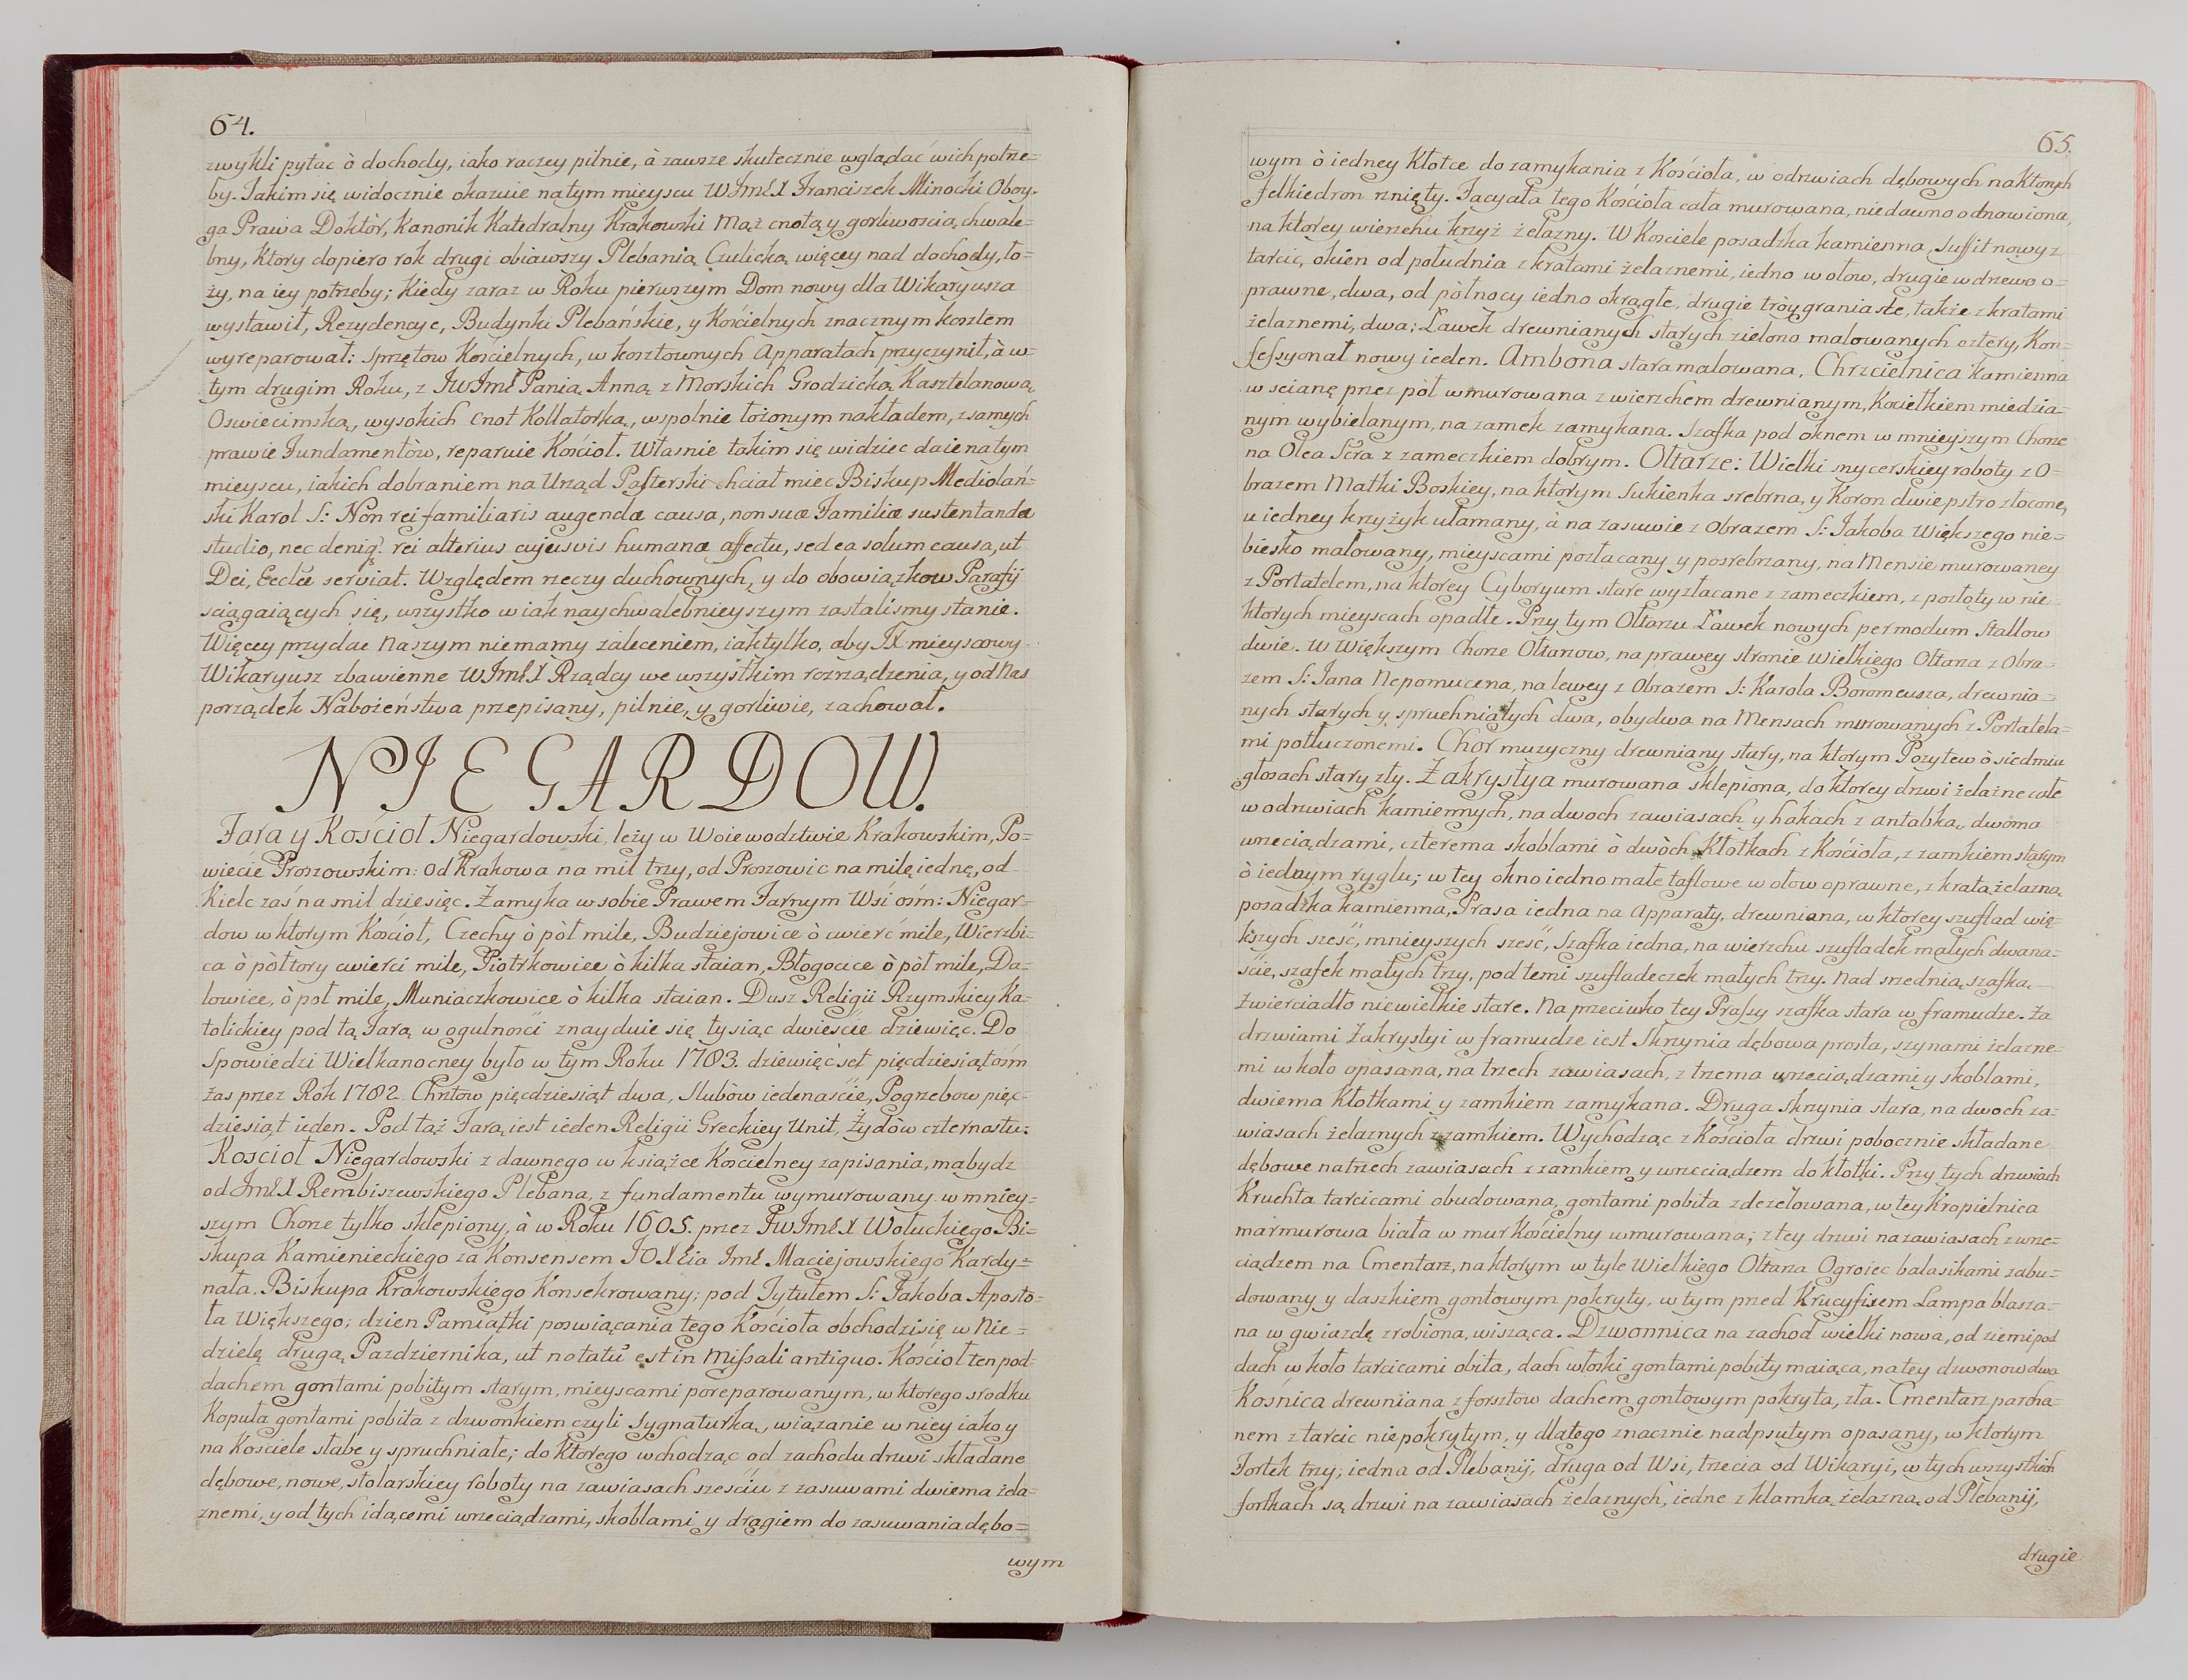 64.
zwykli pytac ò dochody, iako raczey pilnie, à zawsze skutecznie wglądać w ich potrze=
by. Takim się widocznie okazuie na tym mieyscu WJmćX Franciszek Minocki Oboy-
ga Prawa Doktòr, Kanonik Katedralny Krakowski Mąż cnotą y gorliwoscią chwale=
bny, Ktory dopiero rok drugi obiąwszy Plebanią Czulicką więcey nad dochody, ło=
ży, na iey potrzeby; Kiedy zaraz w Roku pierwszym Dom nowy dla Wikaryusza
wystawił, Rezydencye, Budynki Plebańskie, y Kościelnych znacznym kosztem
wyreparował: Sprzętow Kościelnych, w kosztownych Apparatach przyczynił, à w=
tym drugim Roku, z JWJmć Panią Anną z Morskich Grodzicką Kasztelanową
Oswiecimską, wysokich cnot Kollatorką, wspolnie łożonym nakładem, z samych
prawie Fundamentòw, reparuie Kościoł. Własnie takim się widziec daie na tym
mieyscu, iakich dobraniem na Urząd Pasterski chciał miec Biskup Mediolań=
ski Karol S: Non rei familiaris augendæ causa, non suæ Familiæ sustentandæ
studio, nec deniq; rei alterius cujusvis humanæ affectu, sed ea solum causa, ut
Dei, Eccłæ serviat. Względem rzeczy duchownych, y do obowiązkow Parafij
sciągaiących się, wszystko w iak naychwalebnieyszym zastalismy stanie.
Więcey przydac Naszym niemamy zaleceniem, iak tylko, aby JX mieyscowy
Wikaryusz zbawienne WJmćX Rządcy we wszystkim rozrządzenia, y od Nas
porządek Nabożeństwa przepisany, pilnie, y gorliwie, zachował.
NIEGARDOW.
Fara y Kościoł Niegardowski, leży w Woiewodztwie Krakowskim, Po=
wiecie Proszowskim: od Krakowa na mil trzy, od Proszowic na milę iednę, od
Kielc zaś na mil dziesięc. Zamyka w sobie Prawem Farnym Wsi ośm: Niegar=
dow w ktorym Kościoł, Czechy ò pòł mile, Budziejowice ò cwierć mile, Wierzbi=
ca ò pòłtory cwierci mile, Piotrkowice ò kilka staian, Błogocice ò pòł mile, Da=
lowice, ò poł mile, Muniaczkowice ò kilka staian. Dusz Religii Rzymskiey Ka=
tolickiey pod tą Farą w ogulności znayduie się tysiąc dwieście dziewięc. Do
Spowiedzi Wielkanocney było w tym Roku 1783. dziewięćset pięcdziesiąt ośm
Zas przez Rok 1782. Chrztow pięcdziesiąt dwa, Slubòw iedenaście, Pogrzebow pięc=
dziesiąt ieden. Pod tąż Farą iest ieden Religii Greckiey Unit, Żydòw czternastu:
Kościoł Niegardowski z dawnego w książce Koscielney zapisania, ma bydz
od JmćX Rembiszewskiego Plebana, z fundamentu wymurowany w mniey=
szym Chorze tylko sklepiony, à w Roku 1605. przez JWJmćX Wołuckiego Bi=
skupa Kamienieckiego za Konsensem JOXcia Jmć Maciejowskiego Kardy=
nała, Biskupa Krakowskiego Konsekrowany; pod Tytułem S: Jakoba Aposto=
ła Większego; dzien Pamiątki poswiącania tego Kościoła obchodzi się w Nie=
dzielę drugą Pazdziernika, ut notatũ est in Missali antiquo. Kościoł ten pod
dachem gontami pobitym starym, mieyscami poreparowanym, w ktorego srodku
Kopuła gontami pobita z dzwonkiem czyli Sygnaturką, wiązanie w niey iako y
na Kościele słabe y spruchniałe; do Ktorego wchodząc od zachodu drzwi składane
dębowe, nowe, stolarskiey roboty na zawiasach sześciu z zasuwami dwiema żela=
znemi, y od tych idącemi wrzeciądzami, skoblami y drągiem do zasuwania dębo=
wym
65.
wym ò iedney Kłotce do zamykania z Kościoła, w odrzwiach dębowych na Ktorych
Felkiedron rznięty. Facyata tego Kościoła cała murowana, niedawno odnowiona,
na ktorey wierzchu krzyż żelazny. W Kosciele posadzka kamienna, Suffit nowy z
tarcic, okien od południa z kratami żelaznemi, iedno w ołow, drugie w drzewo o=
prawne, dwa, od pòłnocy iedno okrągłe, drugie tròygraniaste, także z kratami
żelaznemi, dwa; Ławek drewnianych starych zielono malowanych cztery, Kon=
fessyonał nowy ieden. Ambona stara malowana, Chrzcielnica kamienna
w scianę przez pòł wmurowana z wierzchem drewnianym, Kociełkiem miedzia=
nym wybielanym, na zamek zamykana. Szafka pod oknem w mnieyszym Chorze
na Olea Scra z zameczkiem dobrym. Ołtarze: Wielki snycerskiey roboty z O=
brazem Matki Boskiey, na ktorym Sukienka srebrna, y Koron dwie pstro złocone,
u iedney krzyżyk ułamany, à na zasuwie z Obrazem S: Jakoba Większego nie=
biesko malowany, mieyscami pozłacany y posrebrzany, na Mensie murowaney
z Portatelem, na ktorey Cyboryum stare wyzłacane z zameczkiem, z pozłoty w nie=
ktorych mieyscach opadłe. Przy tym Ołtarzu Ławek nowych per modum Stallow
dwie. W Większym Chorze Ołtarzow, na prawey stronie Wielkiego Ołtarza z Obra=
zem S: Jana Nepomucena, na lewey z Obrazem S: Karola Boromeusza, drewnia=
nych starych y spruchniałych dwa, obydwa na Mensach murowanych z Portatela=
mi potłuczonemi. Chor muzyczny drewniany stary, na ktorym Pozytew ò siedmiu
głosach stary zły. Zakrystya murowana sklepiona, do ktorey drzwi żelazne całe
w odrzwiach kamiennych, na dwoch zawiasach y hakach z antabką, dwoma
wrzeciądzami, czterema skoblami ò dwòch Kłotkach z Kościoła, z zamkiem starym
ò iednym ryglu; w tey okno iedno małe taflowe w ołow oprawne, z kratą żelazną,
posadzka kamienna, Prasa iedna na Apparaty, drewniana, w ktorey szuflad wię=
kszych sześć, mnieyszych sześć, Szafka iedna, na wierzchu szufladek małych dwana=
ście, szafek małych trzy, pod temi szufladeczek małych trzy. Nad srzednią szafką
Zwierciadło niewielkie stare. Na przeciwko tey Prassy szafka stara w framudze. Za
drzwiami Zakrystyi w framudze iest Skrzynia dębowa prosta, szynami żelazne=
mi w koło opasana, na trzech zawiasach, z trzema wrzeciądzami y skoblami,
dwiema Kłotkami y zamkiem zamykana. Druga Skrzynia stara, na dwoch za=
wiasach żelaznych z zamkiem. Wychodząc z Kościoła drzwi pobocznie składane
dębowe na trzech zawiasach z zamkiem y wrzeciądzem do kłotki. Przy tych drzwiach
Kruchta tarcicami obudowana, gontami pobita zdezelowana, w tey Kropielnica
marmurowa biała w mur Kościelny wmurowana; z tey drzwi na zawiasach z wrze=
ciądzem na Cmentarz, na ktorym w tyle Wielkiego Ołtarza Ogroiec balasikami zabu=
dowany y daszkiem gontowym pokryty, w tym przed Krucyfixem Lampa blasza=
na w gwiazdę zrobiona, wisząca. Dzwonnica na zachod wielki nowa, od ziemi pod
dach w koło tarcicami obita, dach włoski gontami pobity maiąca, na tey dzwonow dwa
Kośnica drewniana z forsztow dachem gontowym pokryta, zła. Cmentarz parcha=
nem z tarcic niepokrytym, y dlatego znacznie nadpsutym opasany, w ktorym
Fortek trzy; iedna od Plebanij, druga od Wsi, trzecia od Wikaryi, w tych wszystkich
fortkach są drzwi na zawiasach żelaznych, iedne z klamką żelazną od Plebanij,
drugie